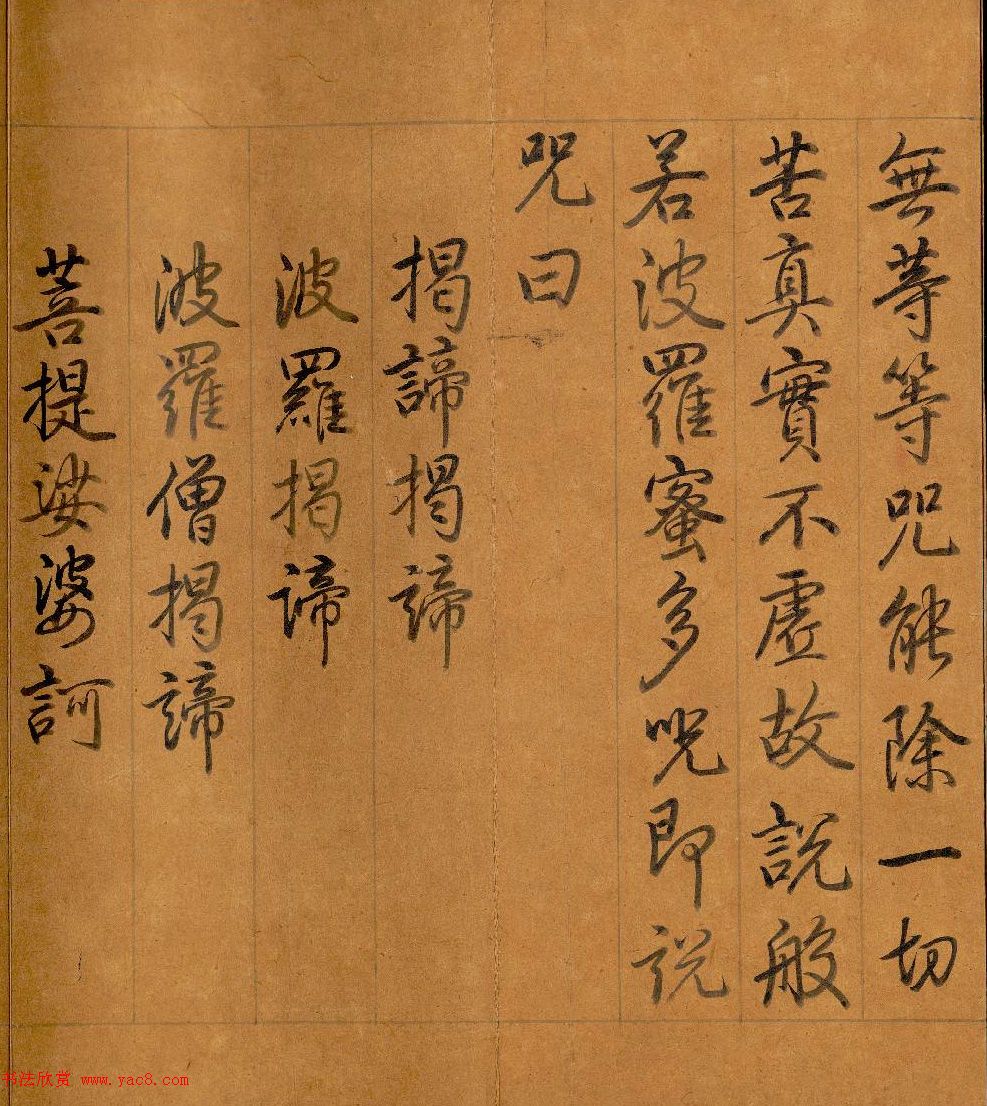 無等等咒能除一切
苦真實不虛故說般
若波羅蜜多咒即說
咒曰
揭諦揭諦
波羅揭諦
波羅僧揭諦
菩提娑婆訶
书法欣赏 www.yac8.com